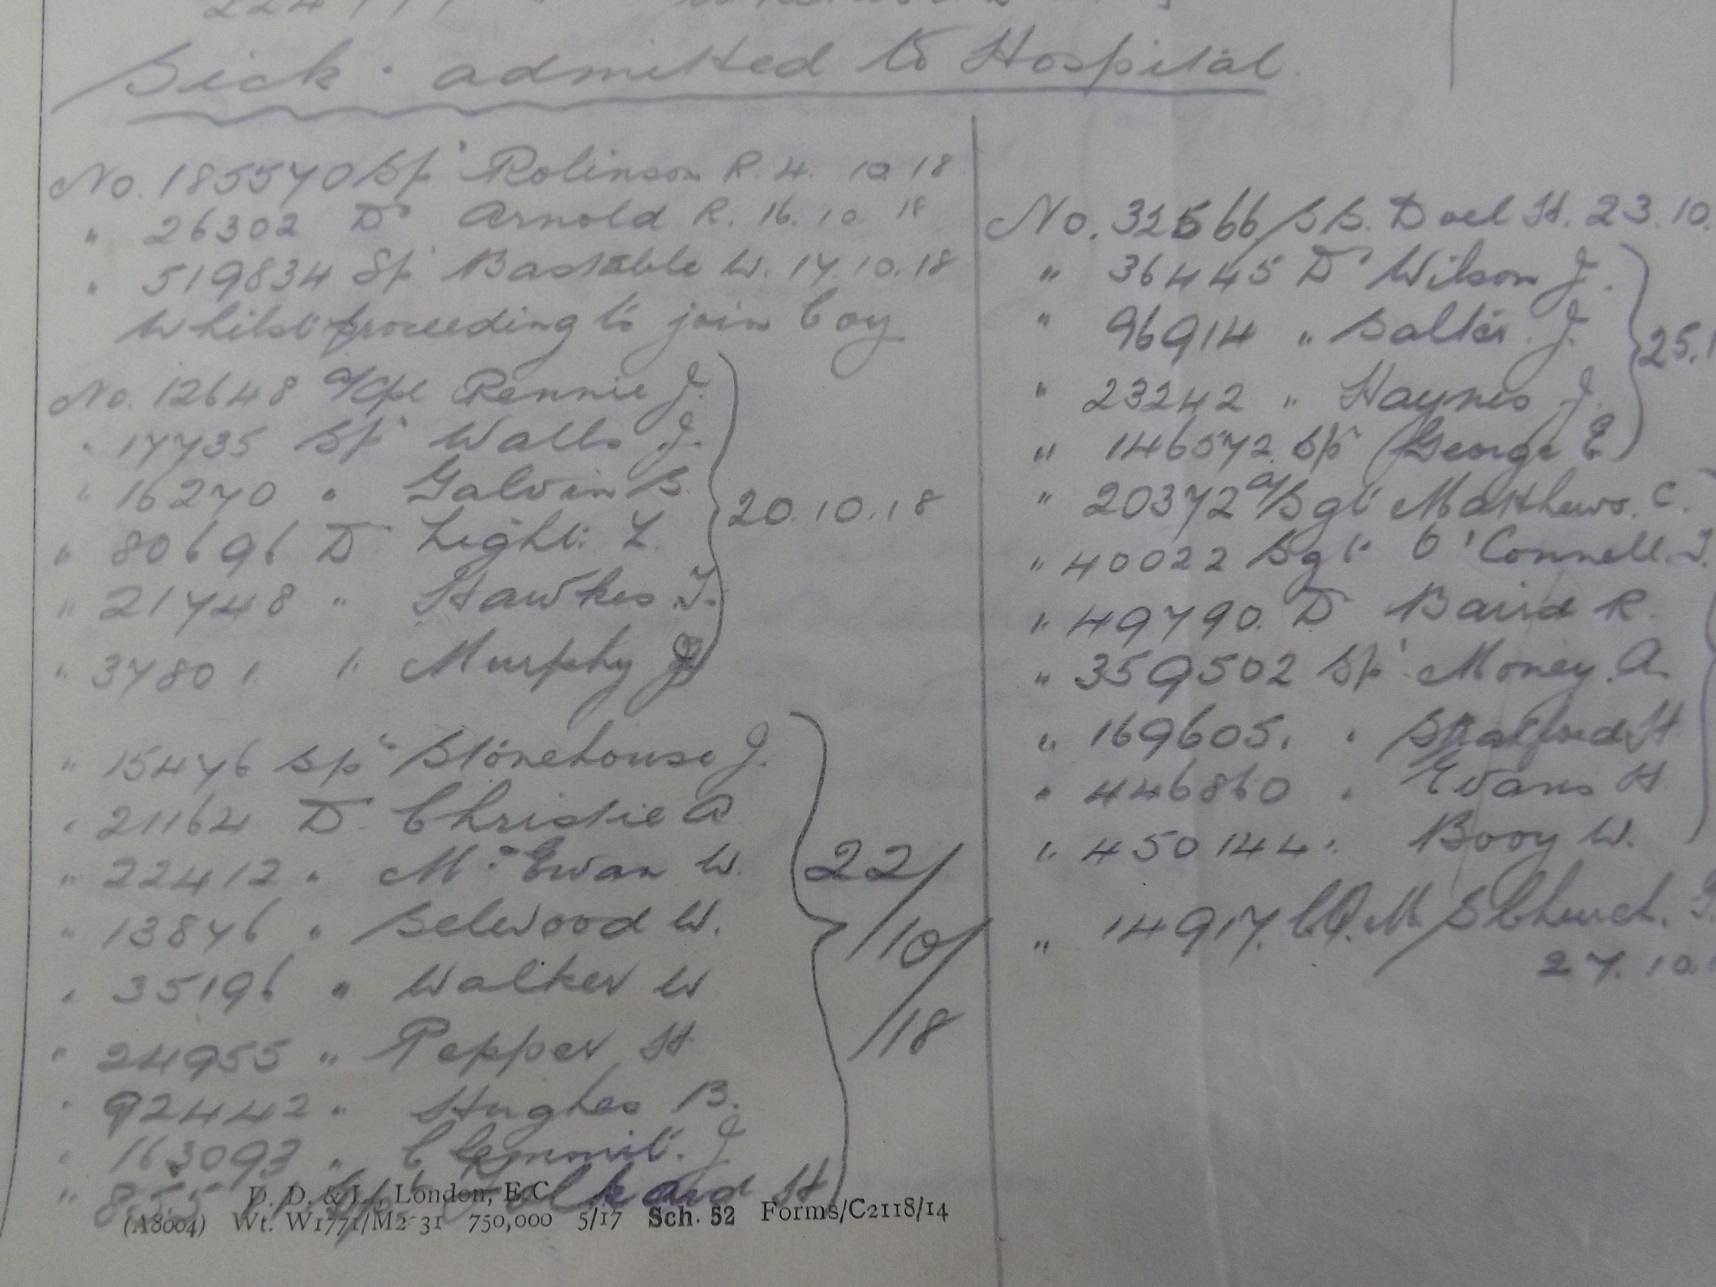 Sick. admitted to Hospital.
No. 185570 Sp' Rolinson R. 4. 10. 18
" 26302 Dr Arnold R. 16. 10. 18
" 519834 Sp' Bastable W. 17.10.18
Whilst proceeding to join Coy
No. 12648 a/Cpl Rennie J.
" 17735 Sp' Walls J.
" 16270 " Galvin B.
" 80696 Dr Light. L.
" 21748 " Hawkes T.
" 37801. " Murphy
20.10.18
" 15476 Sp' Stonehouse J.
" 21164 Dr Christie A
" 22412 " Mc Ewan W.
" 13876 " Selwood W.
" 35196 " Walker W
" 24955 " Pepper H
" 92442 " Hughes B.
" 163093 " J
" 855 H
22/10/18
D. D. & L., London, E.C.
(A8004) Wt. W1771/M2 31 750,000 5/17 Sch. 52 Forms/C2118/14
No. 32566 S.S. Doel H. 23.10.
" 36445 Dr Wilson J.
" 96914 " Salter J.
" 23242 " Haynes J.
" 146572 Sp' George E
25.1
" 20372 a/Sgt Matthews. C.
" 40022 Sgt O'Connell. T.
" 49790. Dr Baird R.
" 359502 Sp' Money. A
" 169605. " Stratford H
" 446860 " Evans H
" 450144. " Booy W.
" 14917. C.Q.M.S Church.
27.10.